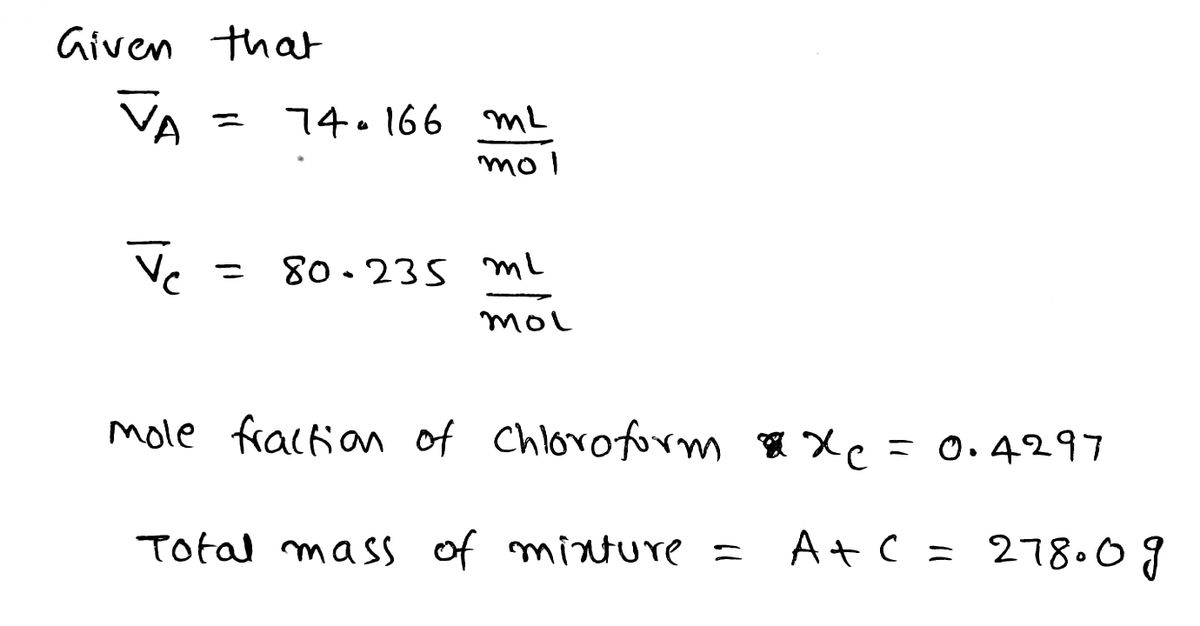 Given that
V̅A = 74.166 mL/mol
V̅c = 80.235 mL/mol
Mole fraction of Chloroform xc = 0.4297
Total mass of mixture = A + C = 278.0 g